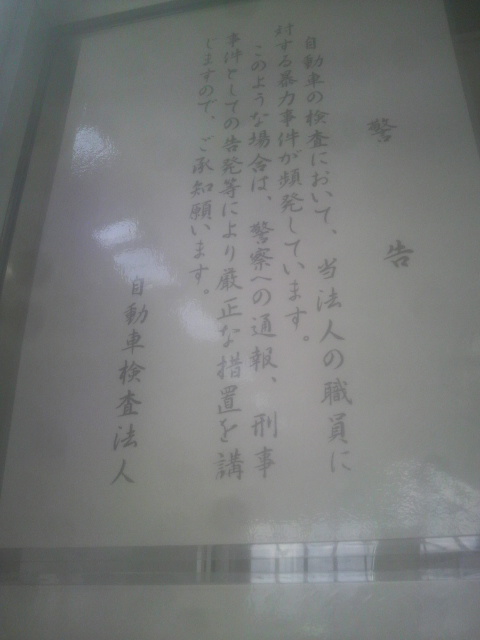 警告
自動車の検査において、当法人の職員に
対する暴力事件が頻発しています。
このような場合は、警察への通報、刑事
事件としての告発等により厳正な措置を講
じますので、ご承知願います。
自動車検査法人